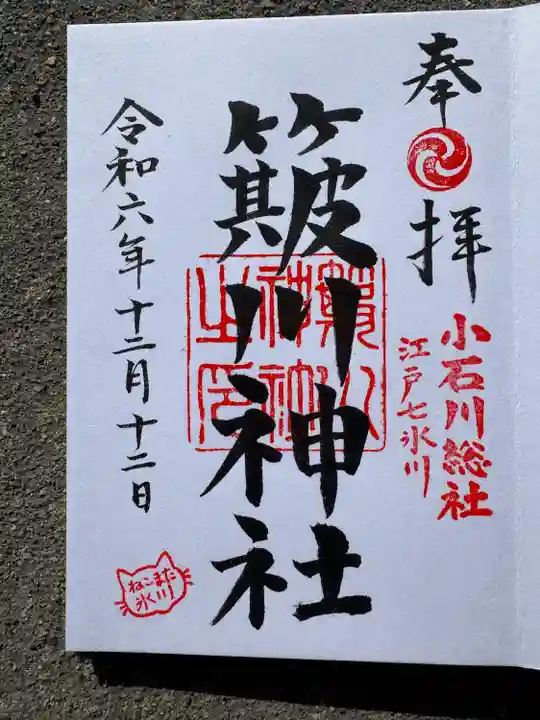 奉拝
小石川総社
江戸七氷川
簸川神社
令和六年十二月十二日
ねこまた
氷川